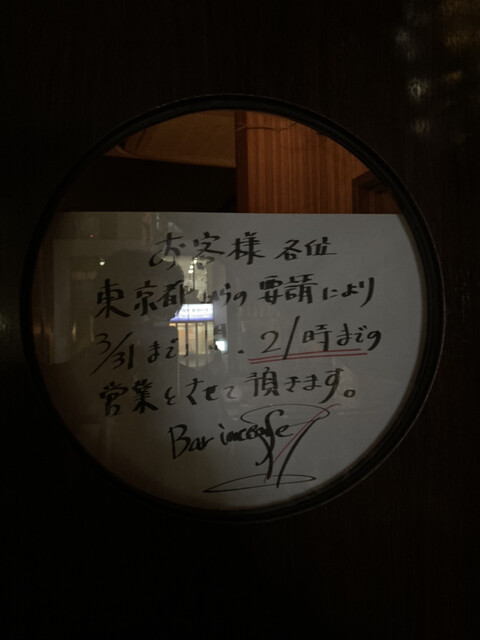 お客様 各位
東京都からの 要請により
3/31 まで 21時までの
営業とさせて 頂きます。
Bar incense